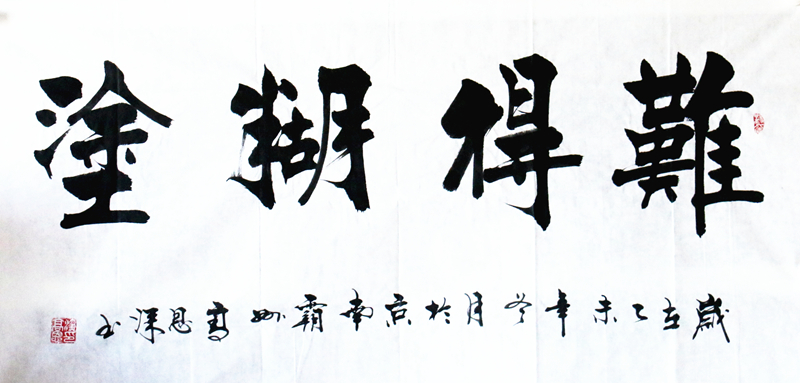 難得糊塗
歲在乙未年冬月於京南霸州高恩深书